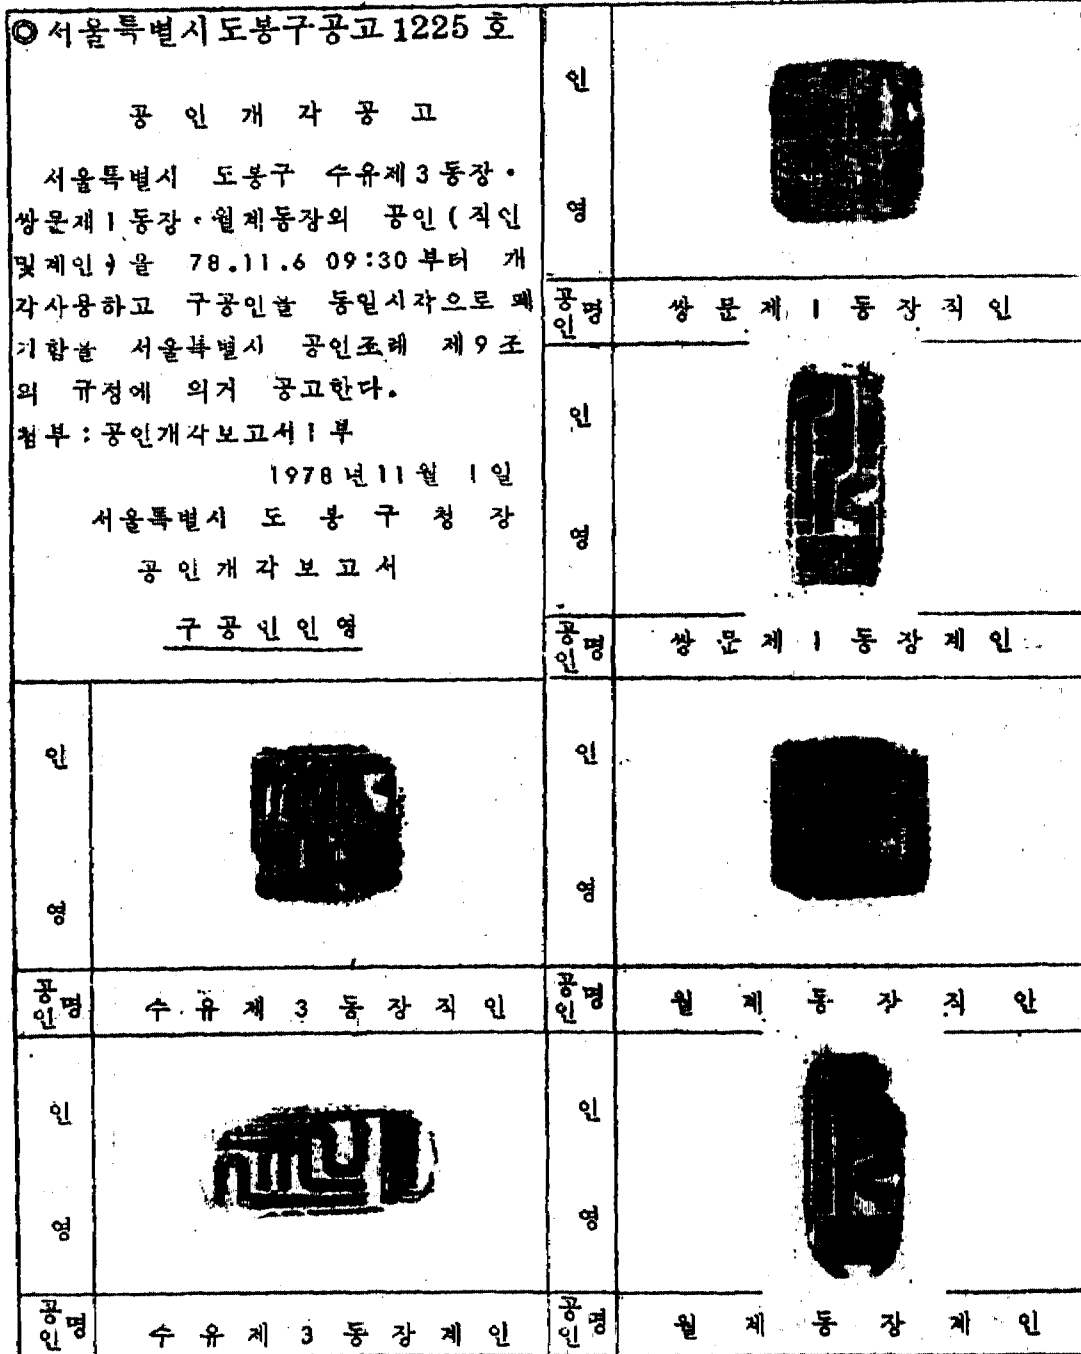 ◎서울특별시도봉구공고1225호
공인개각공고
서울특별시 도봉구 수유제3동장·
쌍문제1동장·월계동장의 공인(직인
및계인)을 78.11.6 09:30부터 개
각사용하고 구공인을 동일시각으로 폐
기함을 서울특별시 공인조례 제9조
의 규정에 의거 공고한다.
첨부:공인개각보고서1부
1978년11월 1일
서울특별시 도봉구청장
공인개각보고서
구공인인영
인영
공인명 수유제3동장직인
인영
공인명 수유제3동장계인
인영
공인명 쌍문제1동장직인
인영
공인명 쌍문제1동장계인
인영
공인명 월계동장직인
인영
공인명 월계동장계인